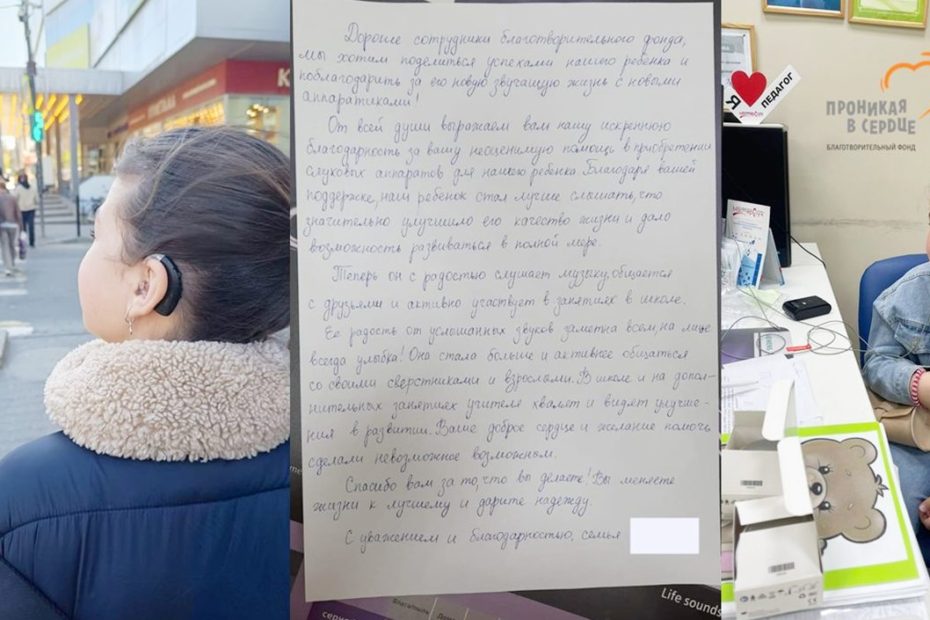 Дорогие сотрудники благотворительного фонда,
мы хотим поделиться успехами нашего ребенка и
поблагодарить за его новую звучащую жизнь с новыми
аппаратиками!
От всей души выражаем вам нашу искреннюю
благодарность за вашу неоценимую помощь в приобретении
слуховых аппаратов для нашего ребенка. Благодаря вашей
поддержке, наш ребенок стал лучше слышать, что
значительно улучшило его качество жизни и дало
возможность развиваться в полной мере.
Теперь он с радостью слушает музыку, общается
с друзьями и активно участвует в занятиях в школе.
Ее радость от услышанных звуков заметна всем, на лице
всегда улыбка! Она стала больше и активнее общаться
со своими сверстниками и взрослыми. В школе и на допол-
нительных занятиях учителя хвалят и видят улучше-
ния в развитии. Ваше доброе сердце и желание помочь
сделали невозможное возможным.
Спасибо вам за то, что вы делаете! Вы меняете
жизни к лучшему и дарите надежду.
С уважением и благодарностью, семья
Life sounds
Я
ПЕДАГОГ
ПРОНИКАЯ
В СЕРДЦЕ
БЛАГОТВОРИТЕЛЬНЫЙ ФОНД